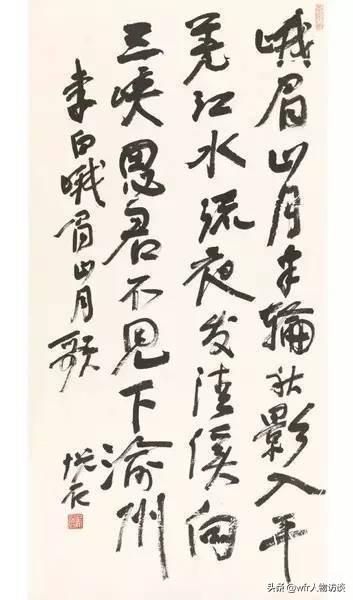 峨眉山月半輪秋影入平
羌江水流夜发清溪向
三峡思君不见下渝州
李白峨眉山月歌
头条@wfr人物访谈